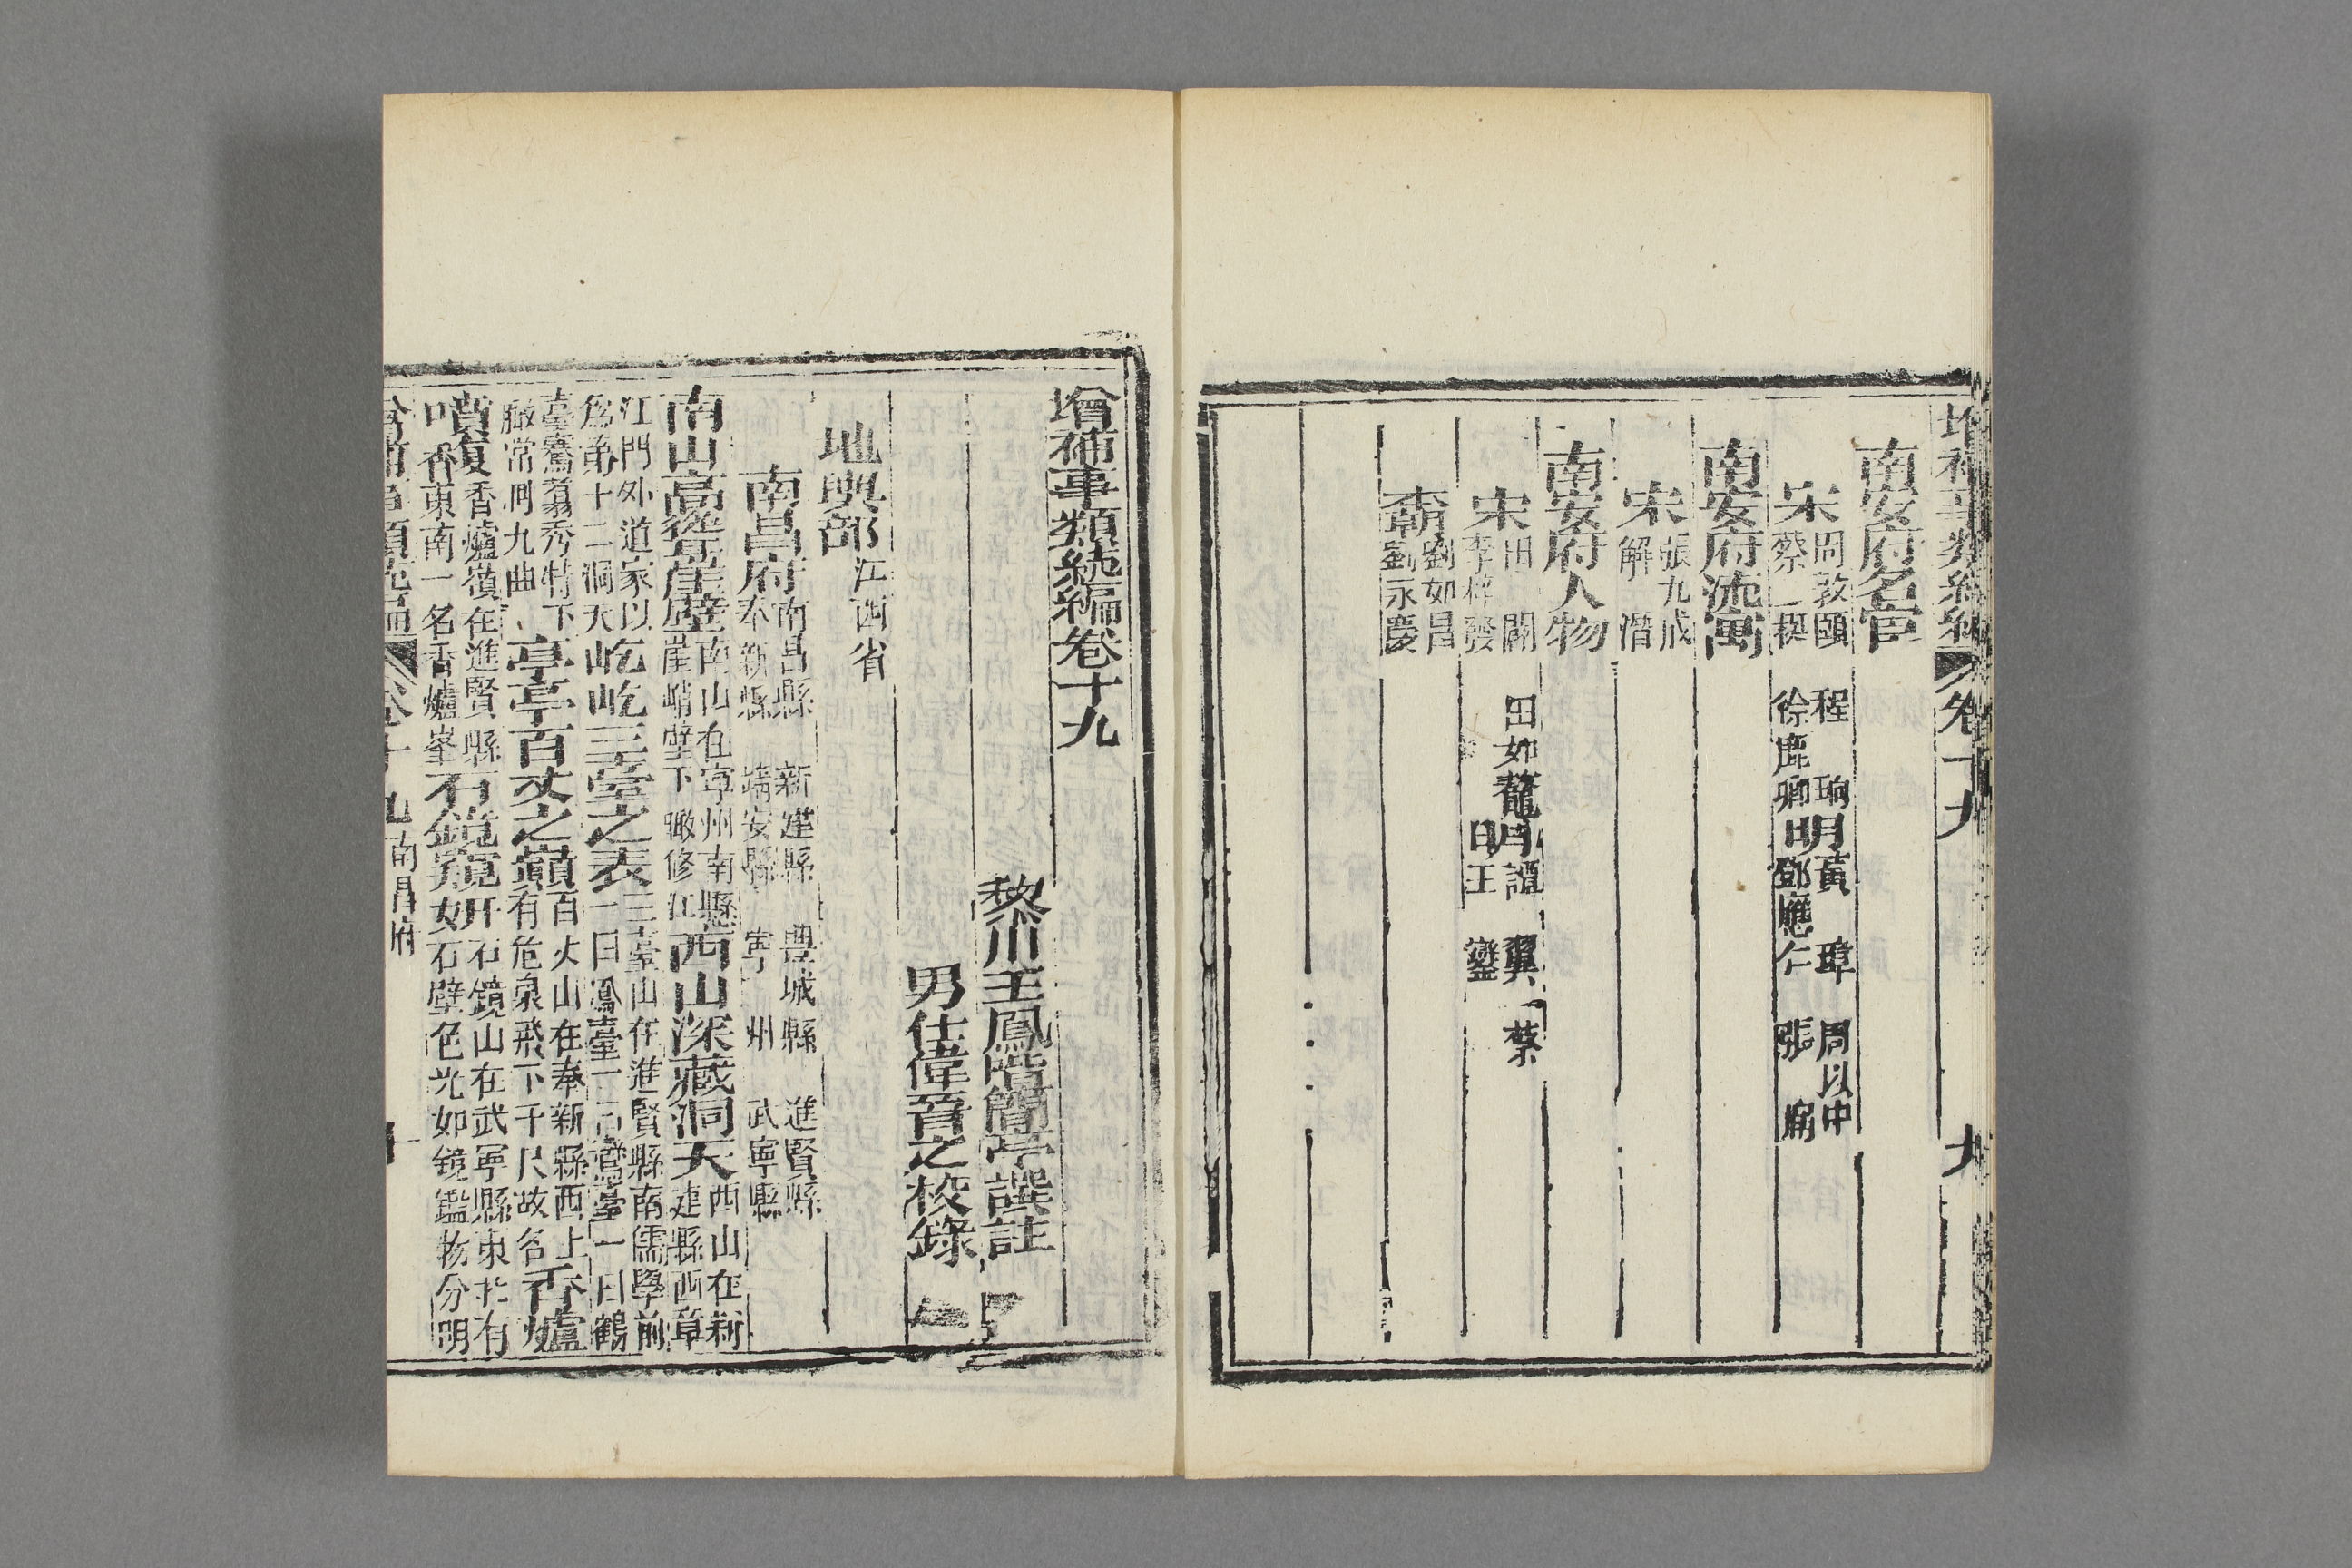 南安府名宦
宋周敦頤 程珦 明黃瑋 周以中
蔡一 徐鹿卿 鄧應仁 張
南安府流寓
宋張九成
解潛
南安府人物
宋田闢 田如鼇 明譚翼 蔡
李梓發 王鑾
劉如昌
劉永慶
增補事類統編卷十九
黎川王鳳喈簡亭譔註
男仕偉晉之校錄
地輿部江西省
南昌府南昌縣 新建縣 豐城縣 進賢縣
奉新縣 靖安縣 寧州 武寧縣
南山高聳崖壁南山在寧州南懸
崖峭壁下瞰修江西山深藏洞天西山在新
建縣西章
江門外道家以
為第十二洞天屹屹三臺之表三臺山在進賢縣南儒學前
一曰鳳臺一曰鸞臺一曰鶴
臺騫翥秀特下
瞰常州九曲亭亭百丈之巔百丈山在奉新縣西上
有危泉飛下千尺故名香爐
噴馥香爐嶺在進賢縣
東南一名香爐峯石鏡窺妍石鏡山在武寧縣東北有
石壁色光如鏡鑑物分明
卷十九 南昌府